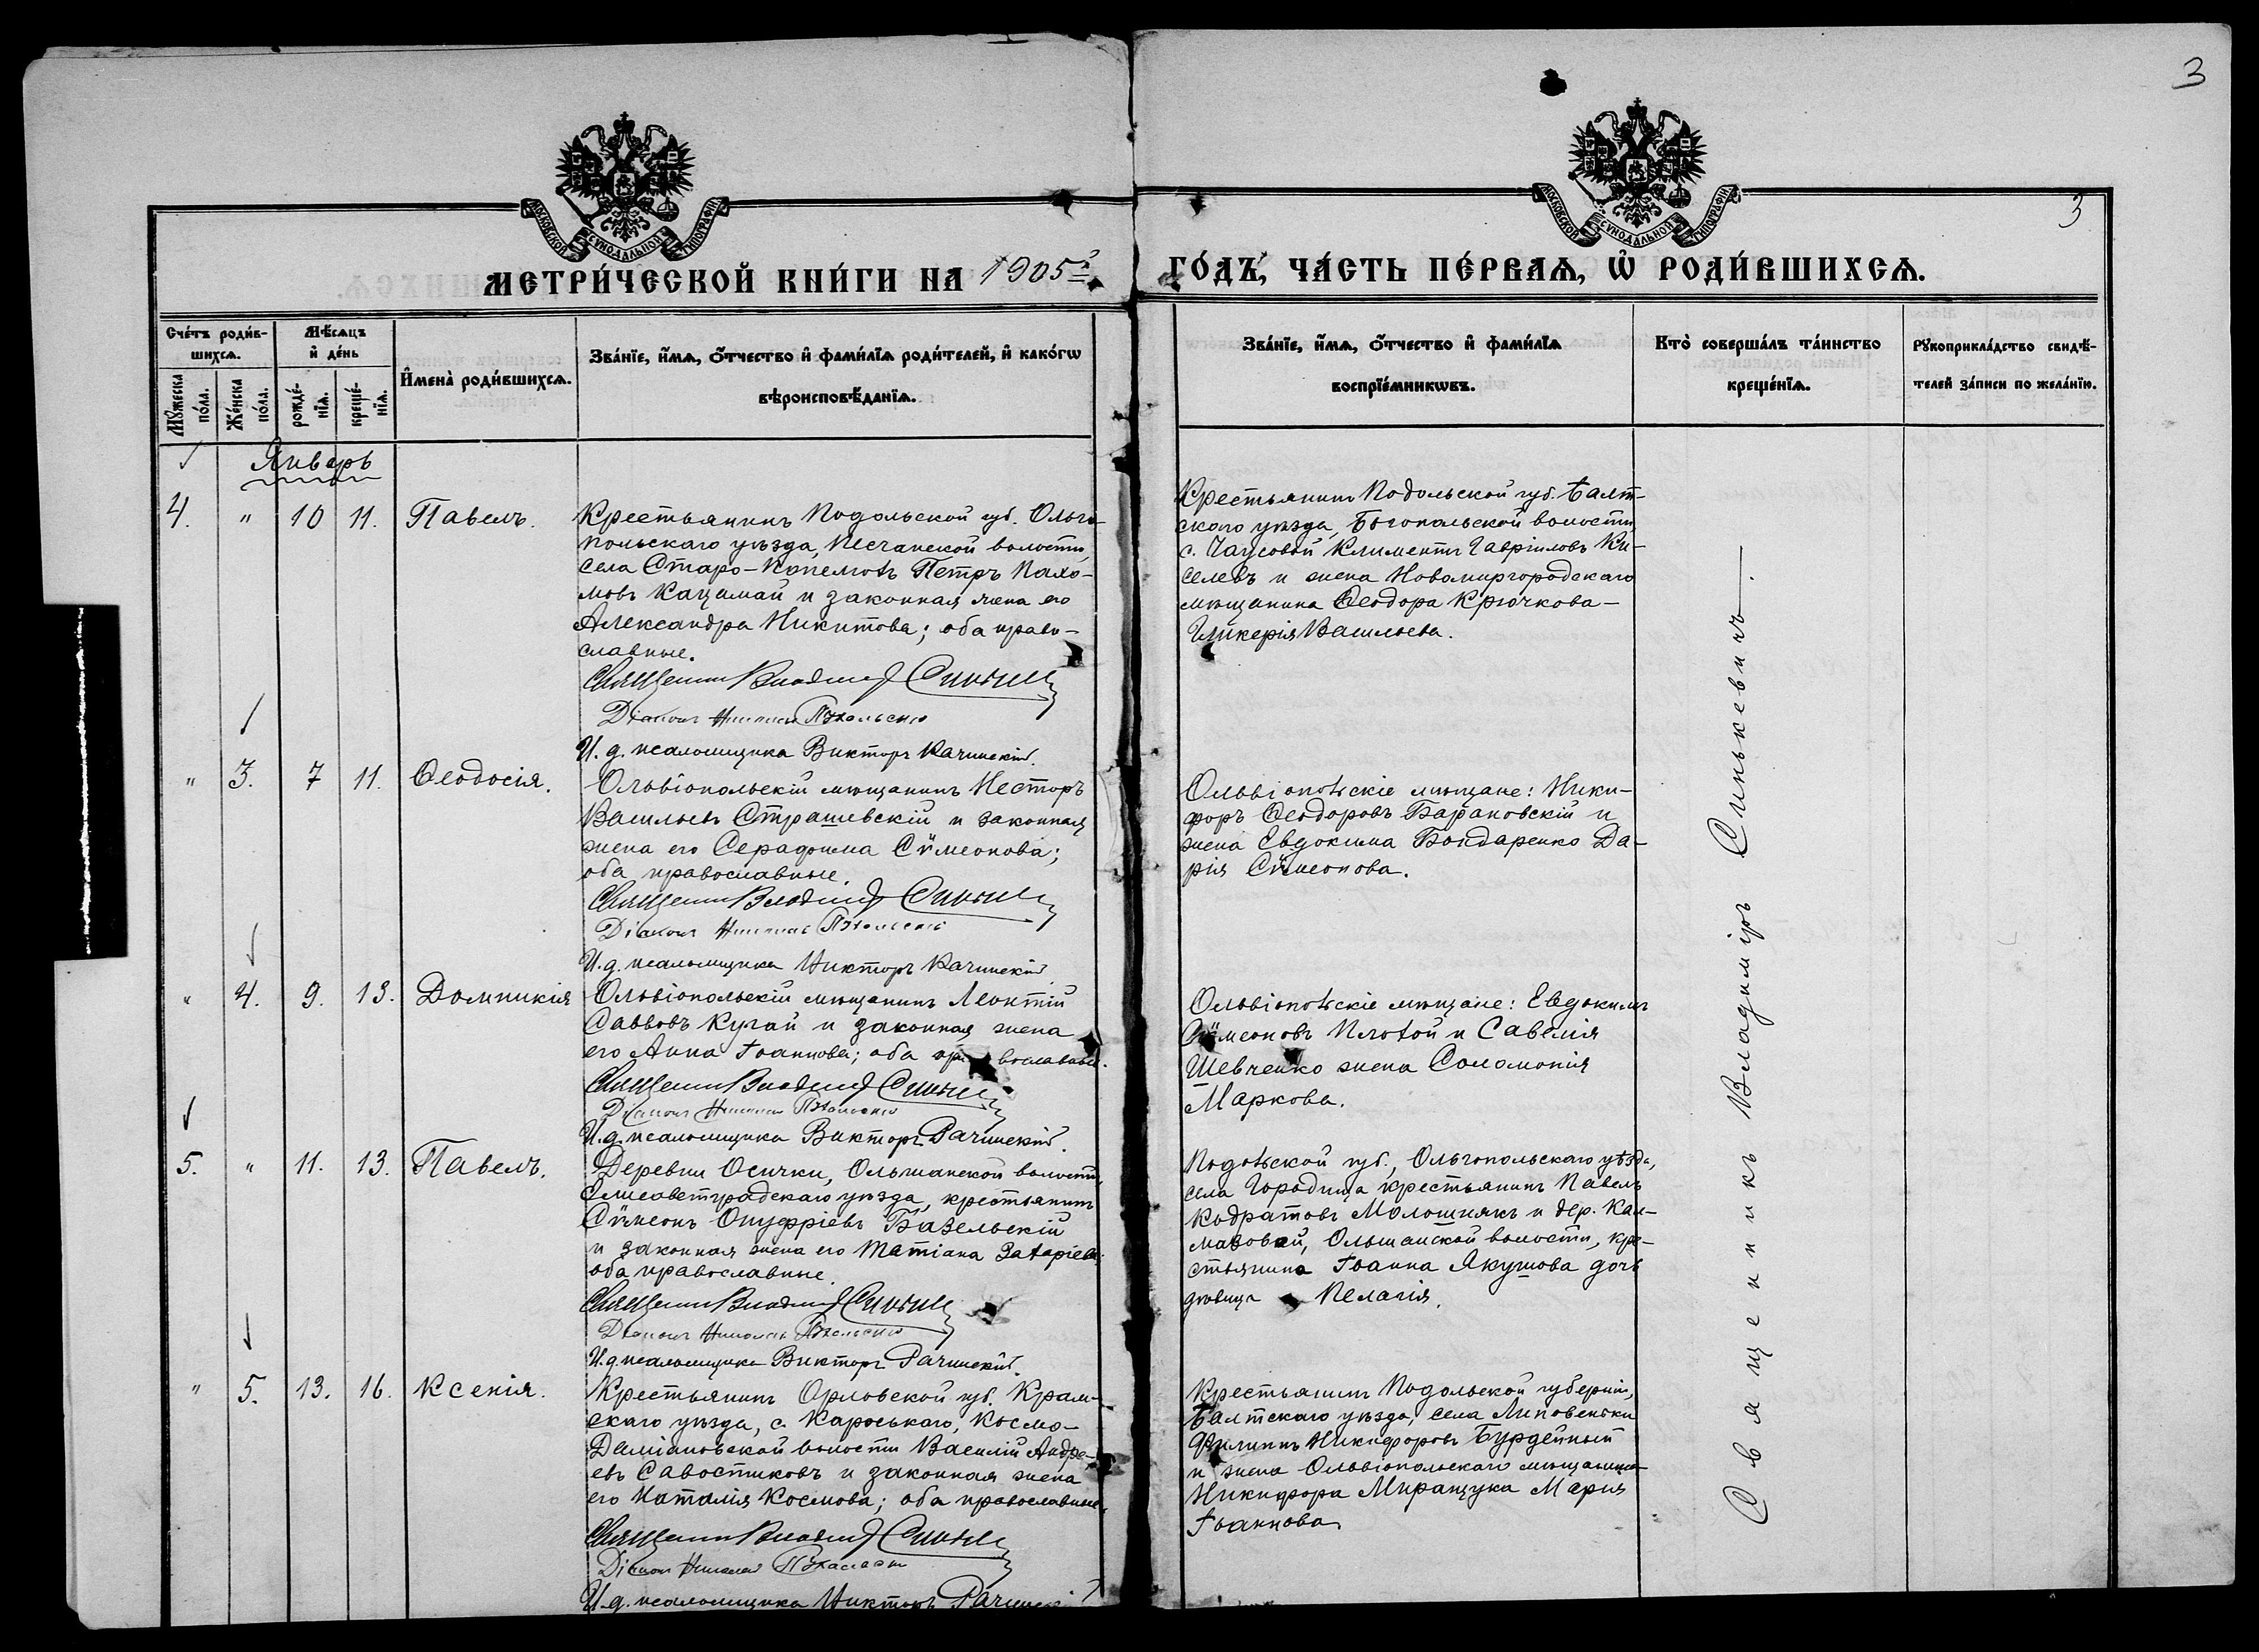 3
МОСКОВСКОЙ СѴНОДАЛЬНОЙ ТИПОГРАФІИ
МОСКОВСКОЙ СѴНОДАЛЬНОЙ ТИПОГРАФІИ
3
МЕТРИ́ЧЕСКОЙ КНИ́ГИ НА 1905й
ГО́ДЪ, ЧА́СТЬ ПЕ́РВАѦ, Ѽ РОДИ́ВШИХСѦ.
Сче́тъ роди́в-
шихсѧ.
Мꙋ́жеска по́ла.
Же́нска по́ла.
Мѣ́сѧцъ
и҆ де́нь
рожде́-
нїѧ.
креще́-
нїѧ.
И҆мена̀ роди́вшихсѧ.
Зва́нїе, и҆́мѧ, ѻ҆́тчество и҆ фами́лїѧ роди́телей, и҆ како́гѡ
вѣроисповѣ́данїѧ.
Зва́нїе, и҆́мѧ, ѻ҆́тчество и҆ фами́лїѧ
воспрїе́мникѡвъ.
Кто̀ соверша́лъ та́инство
креще́нїѧ.
Рꙋкоприкла́дство свидѣ́-
телей за́писи по жела́нїю.
Январь
4. " 10 11. Павелъ.
Крестьянинъ Подольской губ. Ольго-
польскаго уѣзда, Песчанской волости,
села Старо- Петръ Пахо-
мовъ Кацамай и законная жена его
Александра Никитова; оба право-
славные.
Священникъ Владиміръ Синькевичъ
Діаконъ Николай
И. д. псаломщика Викторъ Рачинскій.
Крестьянинъ Подольской губ. Балт-
скаго уѣзда, Богопольской волости
с. Чаусовой Климентъ Гавріиловъ Ки-
селевъ и жена Новомиргородскаго
мѣщанина Ѳеодора Крючкова-
Гликерія Васильева.
" 3. 7 11. Ѳеодосія.
Ольвіопольскій мѣщанинъ Несторъ
Васильевъ Страшевскій и законная
жена его Серафима Сѵмеонова;
оба православные.
Священникъ Владиміръ Синькевичъ
Діаконъ Николай
И. д. псаломщика Викторъ Рачинскій
Ольвіопольскіе мѣщане: Ники-
форъ Ѳеодоровъ Барановскій и
жена Евдокима Бондаренко Да-
рія Сѵмеонова.
" 4. 9. 13. Домникія
Ольвіопольскій мѣщанинъ Леонтій
Саввовъ Кугай и законная жена
его Анна Іоаннова; оба православные.
Священникъ Владиміръ Синькевичъ
Діаконъ Николай
И. д. псаломщика Викторъ Рачинскій.
Ольвіопольскіе мѣщане: Евдокимъ
Сѵмеоновъ Плохой и Савелія
Шевченко жена Соломонія
Маркова.
5. " 11. 13. Павелъ.
Деревни Осички, Ольшанской волости,
Елисаветградскаго уѣзда, крестьянинъ
Сѵмеонъ Онуфріевъ Базельскій
и законная жена его Татіана Захаріева;
оба православные.
Священникъ Владиміръ Синькевичъ
Діаконъ Николай
И. д. псаломщика Викторъ Рачинскій.
Подольской губ., Ольгопольскаго уѣзда,
села Городища крестьянинъ Павелъ
Кодратовъ Молошнякъ и дер. Кал-
мазовой, Ольшанской волости, кре-
стьянина Іоанна Якушова дочь
дѣвица Пелагія.
" 5. 13. 16. Ксенія.
Крестьянинъ Орловской губ. Кром-
скаго уѣзда, с. Короськаго, Космо-
Даміановской волости Василій Андре-
евъ Савостиковъ и законная жена
его Наталія Космова; оба православные.
Священникъ Владиміръ Синькевичъ
Діаконъ Николай
И. д. псаломщика Викторъ Рачинскій
Крестьянинъ Подольской губерніи,
Балтскаго уѣзда, села Липовеньки
Филиппъ Никифоровъ Бурдейный
и жена Ольвіопольскаго мѣщанина
Никифора Миранцука Марія
Іоаннова.
Священникъ Владиміръ Синькевичъ